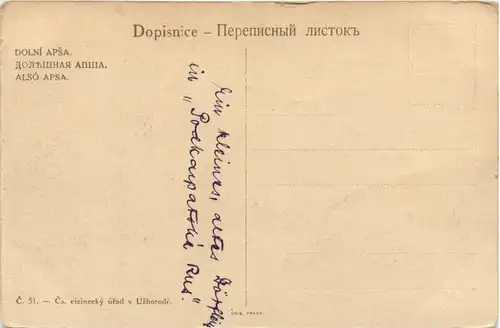 Dopisnice – Переписный листокъ
DOLNÍ APŠA.
ДОЛѢШНАЯ АПША.
ALSÓ APSA.
Ein kleines, altes Dörflein
in „Podkarpatská Rus"
Č. 51. — Čs. cizinecký úřad v Užhorodě.
UNIE, PRAHA.